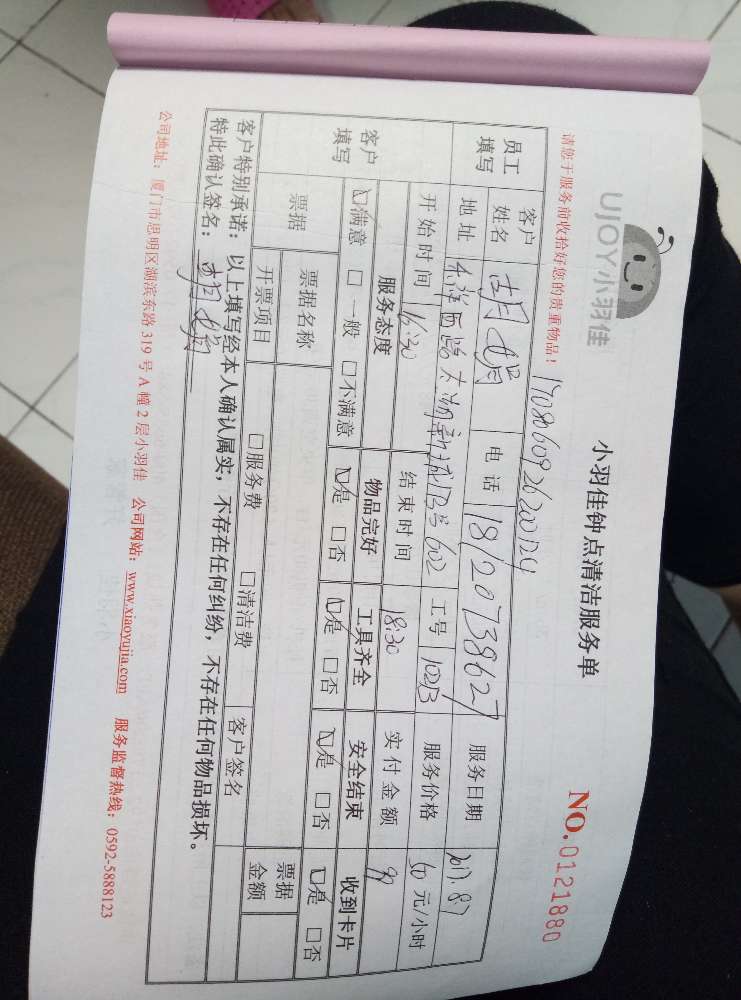 UJOY小羽佳
小羽佳钟点清洁服务单
NO.0121880
请您于服务前收拾好您的贵重物品！
员工填写 客户姓名 胡 电话 18120738627 服务日期 2017.8.7
地址 602 工号 服务价格 60 元/小时
开始时间 16:30 结束时间 18:30 实付金额
客户填写 服务态度 物品完好 工具齐全 安全结束 收到卡片
☑满意 □一般 □不满意 ☑是 □否 ☑是 □否 ☑是 □否 ☑是 □否
票据 票据名称 票据金额
开票项目 □服务费 □清洁费 客户签名
客户特别承诺：以上填写经本人确认属实，不存在任何纠纷，不存在任何物品损坏。
特此确认签名：胡
公司地址：厦门市思明区湖滨东路 319 号 A 幢 2 层小羽佳 公司网站：www.xiaoyujia.com 服务监督热线：0592-5888123